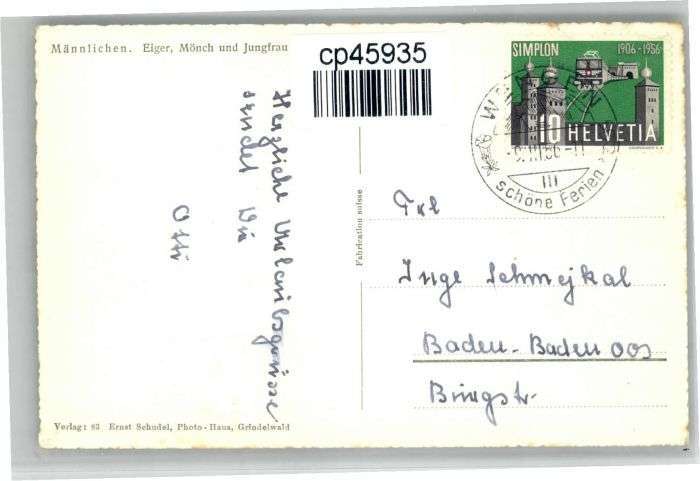 Männlichen. Eiger, Mönch und Jungfrau
cp45935
SIMPLON 1906-1956
10 HELVETIA
WENGEN
schöne Ferien
Herzliche Urlaubsgrüsse
sendet Dir
Otti
Fabrication suisse
Frl
Inge Schmejkal
Baden-Baden oos
Bingstr.
Verlag: 83 Ernst Schudel, Photo-Haus, Grindelwald